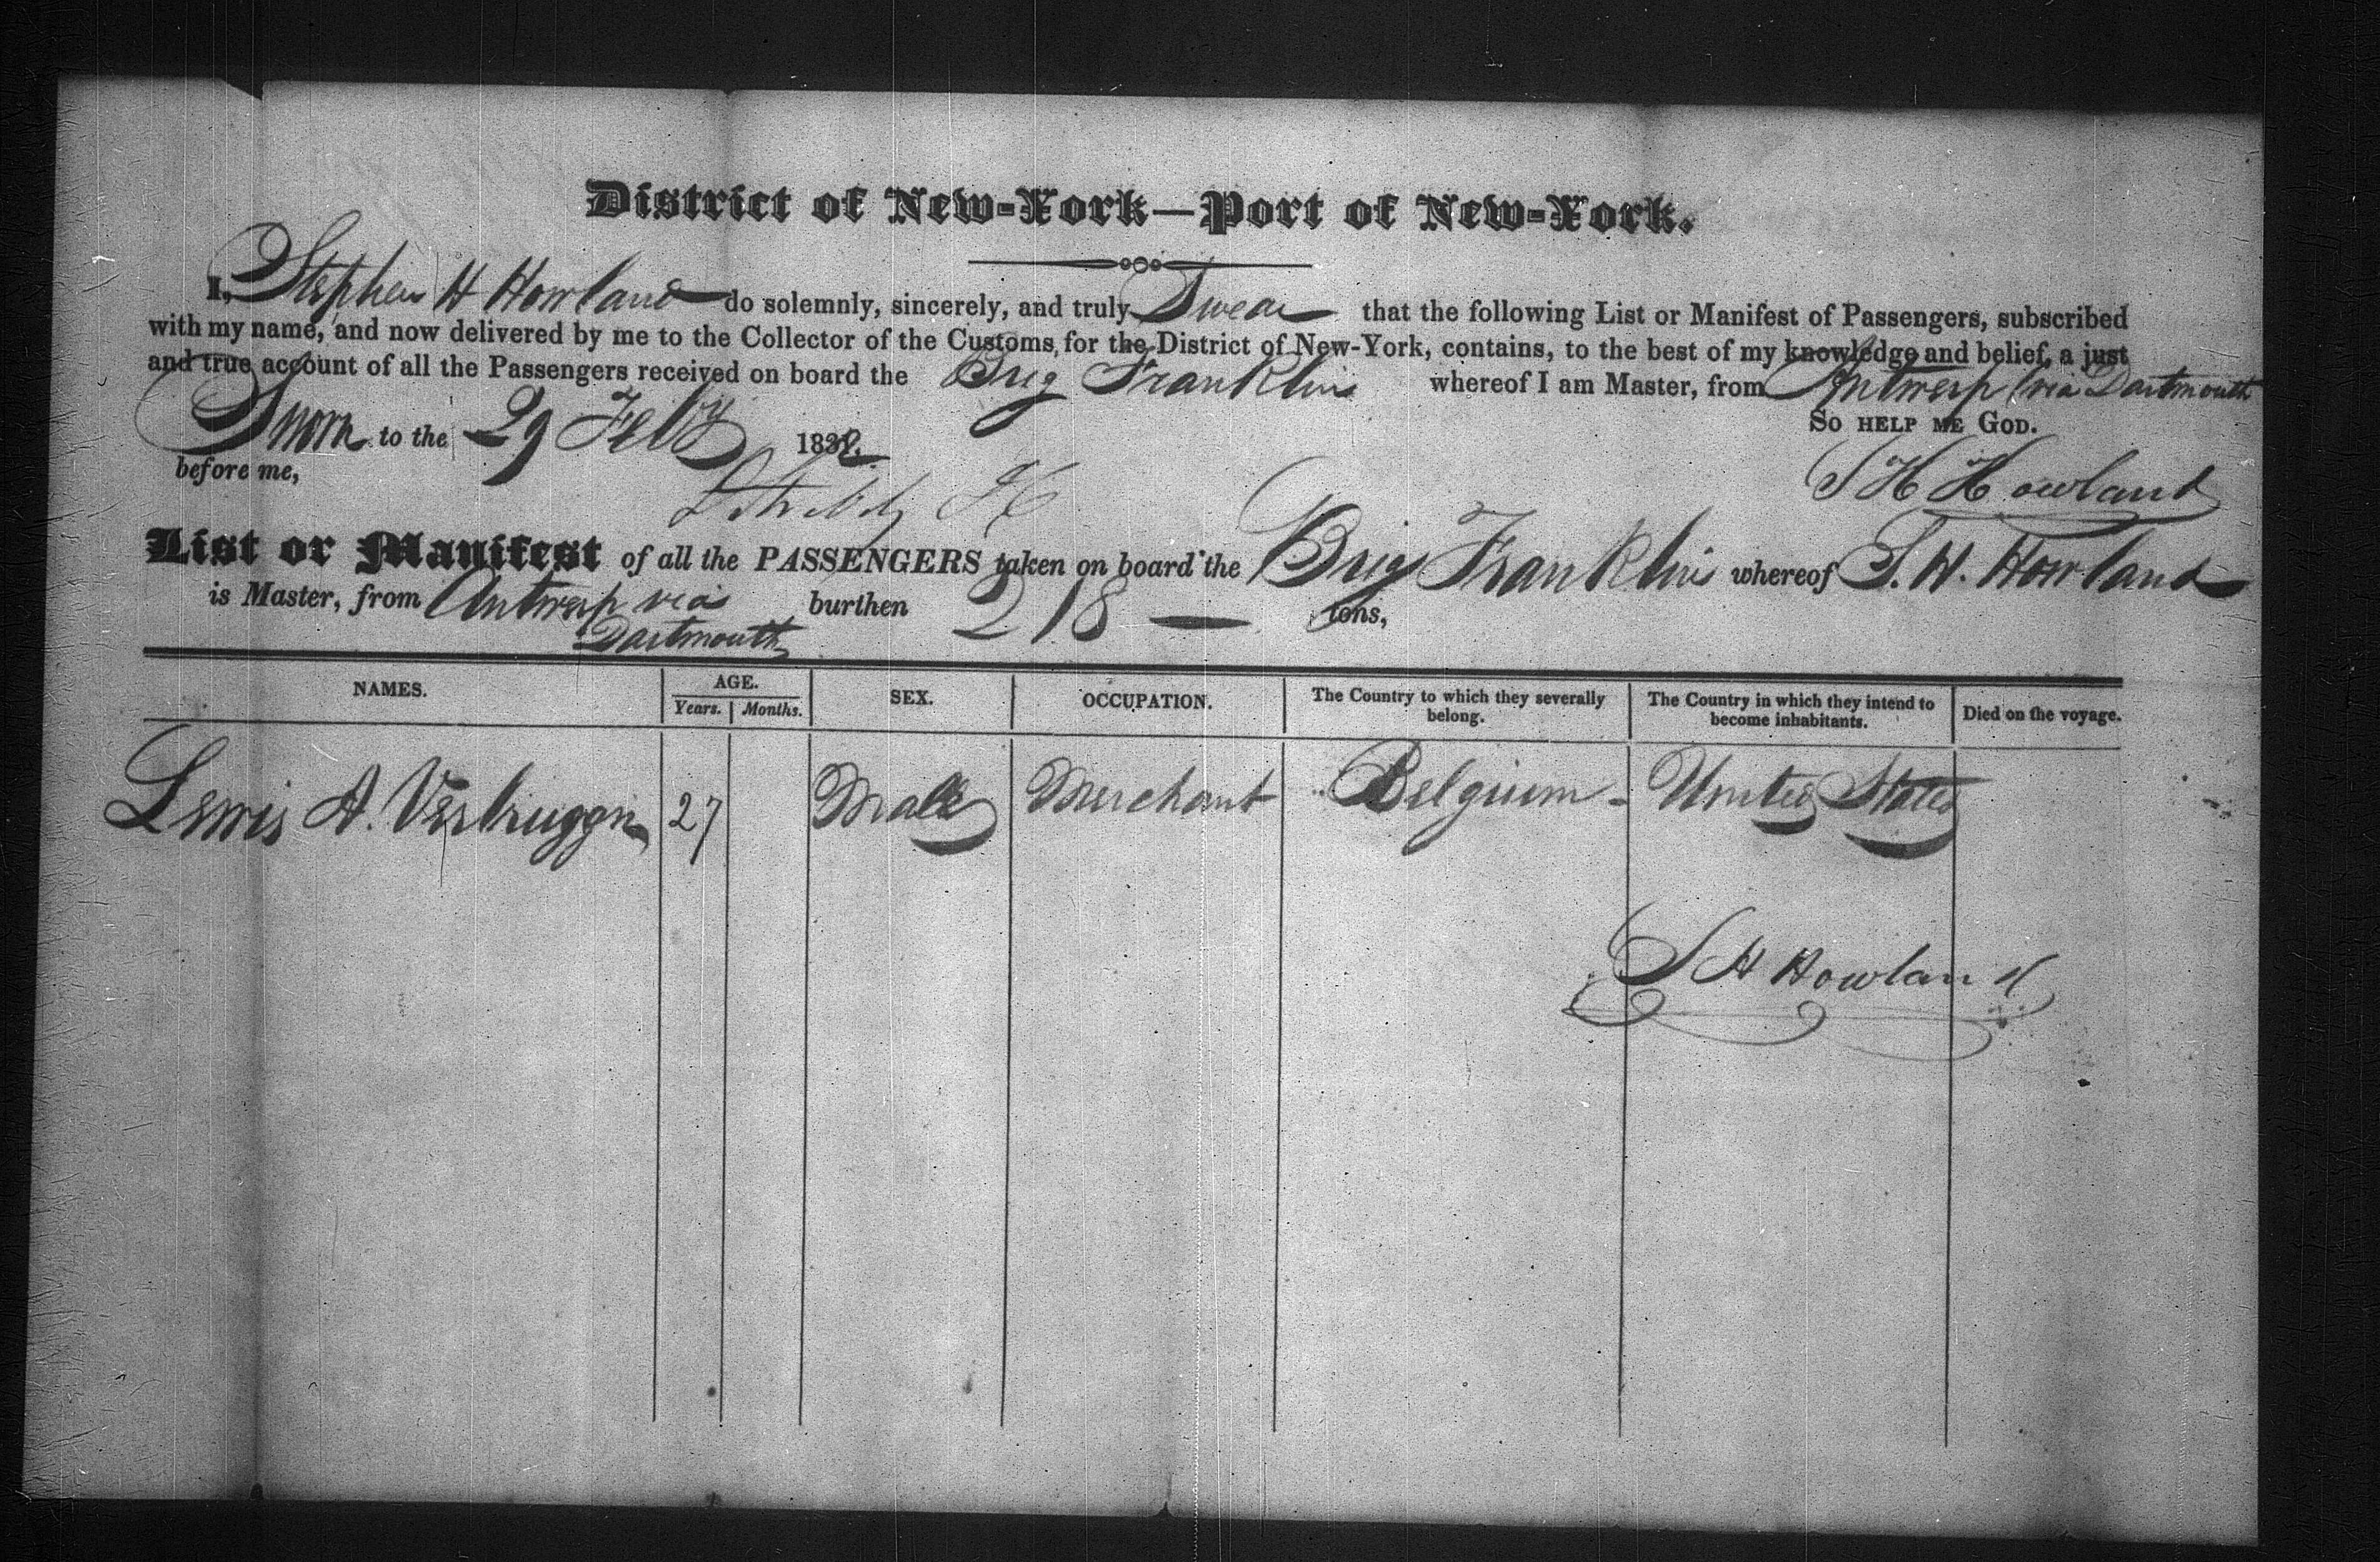 District of New-York—Port of New-York.
I, Stephen H Howland do solemnly, sincerely, and truly Swear that the following List or Manifest of Passengers, subscribed
with my name, and now delivered by me to the Collector of the Customs, for the District of New-York, contains, to the best of my knowledge and belief, a just
and true account of all the Passengers received on board the Brig Franklin whereof I am Master, from Antwerp via Dartmouth
So help me God.
Sworn to the 29 Feby 1832
before me,
S H Howland
List or Manifest of all the PASSENGERS taken on board the Brig Franklin whereof S. H. Howland
is Master, from Antwerp via Dartmouth burthen 218 — tons,
NAMES. AGE. Years. Months. SEX. OCCUPATION. The Country to which they severally belong. The Country in which they intend to become inhabitants. Died on the voyage.
Lewis A. Verbruggen 27 Male Merchant Belgium - United States
S H Howland